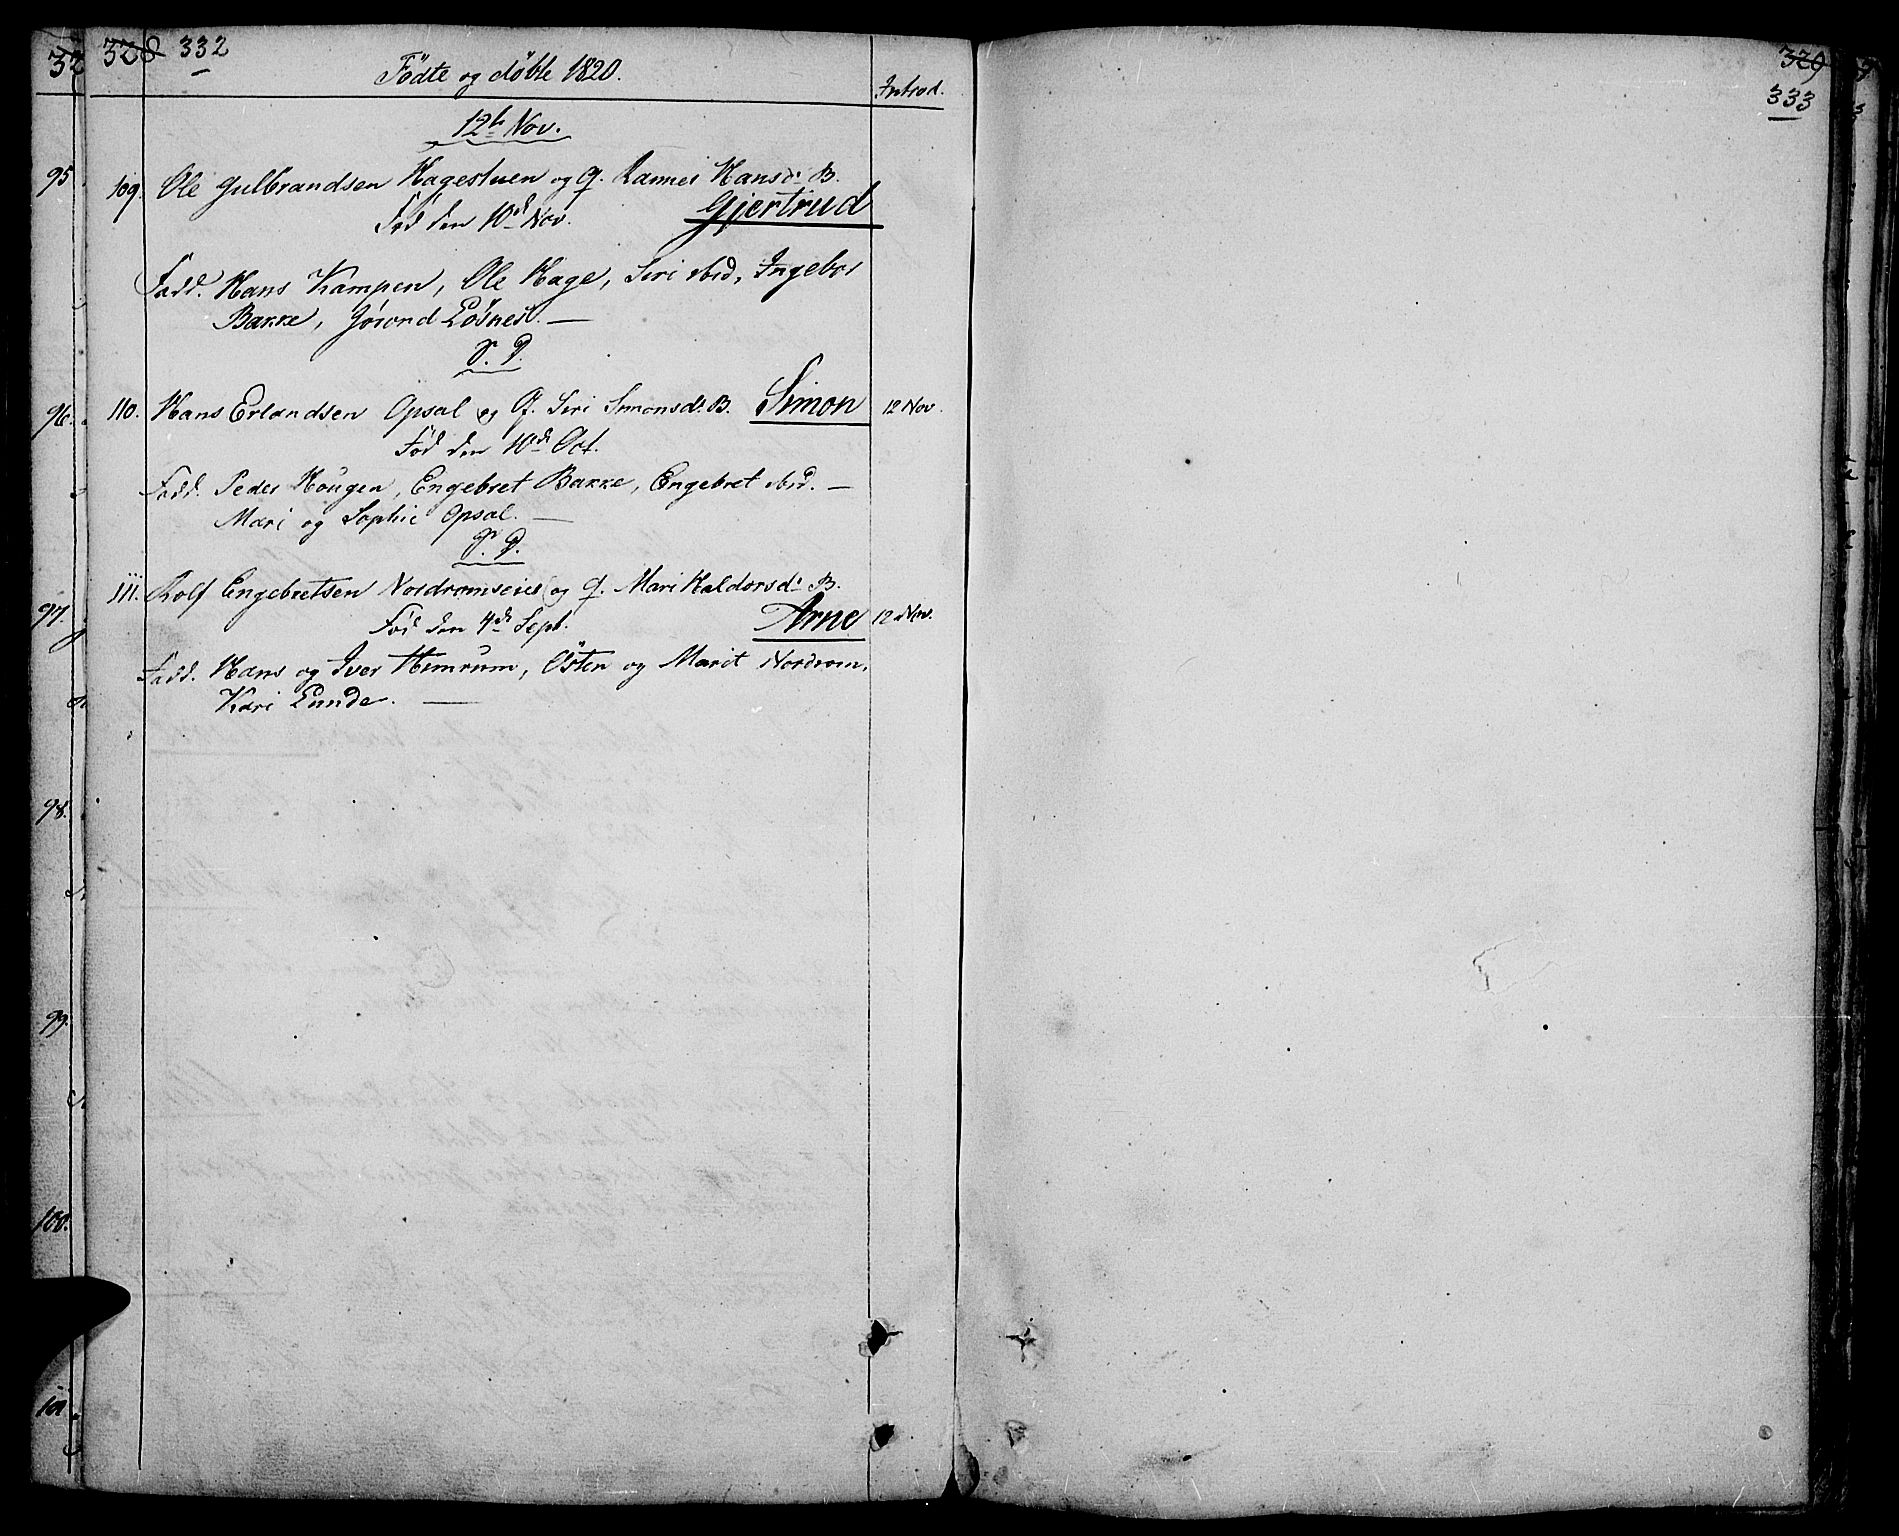 328 332
Födte og döbte 1820.
Introd.
12te Nov.
109. Ole Gulbrandsen Hagestuen og Q. Rannei Hansdr B.
Fød den 10de Nov. Gjertrud
Fadd. Hans Kampen, Ole Hage, Siri ibid, Ingebor
Bakke, Jørond Løsnes. —
S. D.
110. Hans Erlandsen Opsal og Q. Siri Simonsdr B. Simon 12 Nov.
Fød den 10de Oct.
Fadd. Peder Hougen, Engebret Bakke, Engebret ibid. —
Mari og Sophie Opsal. —
S. D.
111. Rolf Engebretsen Nordromseiet og Q. Mari Haldorsdr B.
Fød den 4de Sept. Arne 12 Nov.
Fadd. Hans og Iver Himrum, Östen og Marit Nordrom,
Kari Lunde. —
95
96.
97.
98.
99.
100.
101
329
333